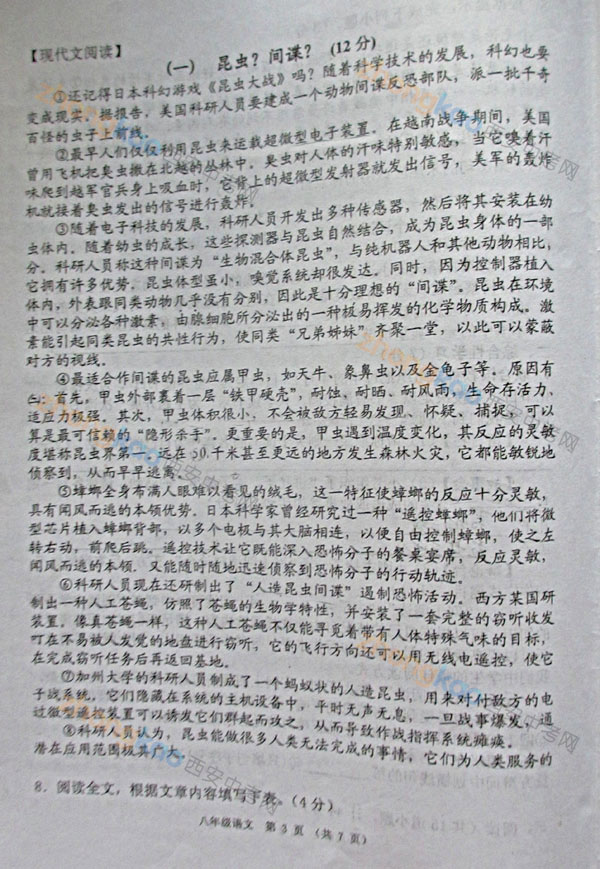 【现代文阅读】
（一） 昆虫？间谍？ （12分）
①还记得日本科幻游戏《昆虫大战》吗？随着科学技术的发展，科幻也要
变成现实。据报告，美国科研人员要建成一个动物间谍反恐部队，派一批千奇
百怪的虫子上前线。
②最早人们仅仅利用昆虫来运载超微型电子装置。在越南战争期间，美国
曾用飞机把臭虫撒在北越的丛林中。臭虫对人体的汗味特别敏感，当它嗅着汗
味爬到越军官兵身上吸血时，它背上的超微型发射器就发出信号，美军的轰炸
机就接着臭虫发出的信号进行轰炸。
③随着电子科技的发展，科研人员开发出多种传感器，然后将其安装在幼
虫体内。随着幼虫的成长，这些探测器与昆虫自然结合，成为昆虫身体的一部
分。科研人员称这种间谍为“生物混合体昆虫”，与纯机器人和其他动物相比，
它拥有许多优势。昆虫体型虽小，嗅觉系统却很发达。同时，因为控制器植入
体内，外表跟同类动物几乎没有分别，因此是十分理想的“间谍”。昆虫在环境
中可以分泌各种激素，由腺细胞所分泌出的一种极易挥发的化学物质构成。激
素能引起同类昆虫的共性行为，使同类“兄弟姊妹”齐聚一堂，以此可以蒙蔽
对方的视线。
④最适合作间谍的昆虫应属甲虫，如天牛、象鼻虫以及金龟子等。原因有
二：首先，甲虫外部裹着一层“铁甲硬壳”，耐蚀、耐晒、耐风雨，生命存活力、
适应力极强。其次，甲虫体积很小，不会被敌方轻易发现、怀疑、捕捉，可以
算是最可信赖的“隐形杀手”。更重要的是，甲虫遇到温度变化，其反应的灵敏
度堪称昆虫界第一，远在50千米甚至更远的地方发生森林火灾，它都能敏锐地
侦察到，从而早早逃离。
⑤蟑螂全身布满人眼难以看见的绒毛，这一特征使蟑螂的反应十分灵敏，
具有闻风而逃的本领优势。日本科学家曾经研究过一种“遥控蟑螂”，他们将微
型芯片植入蟑螂背部，以多个电极与其大脑相连，以便自由控制蟑螂，使之左
转右动，前爬后跳。遥控技术让它既能深入恐怖分子的餐桌宴席，反应灵敏，
闻风而逃的本领，又能随时随地迅速侦察到恐怖分子的行动轨迹。
⑥科研人员现在还研制出了“人造昆虫间谍”遏制恐怖活动。西方某国研
制出一种人工苍蝇，仿照了苍蝇的生物学特性，并安装了一套完整的窃听收发
装置，像真苍蝇一样，这种人工苍蝇不仅能寻觅着带有人体特殊气味的目标，
叮在不易被人发觉的地盘进行窃听，它的飞行方向还可以用无线电遥控，使它
在完成窃听任务后再返回基地。
⑦加州大学的科研人员制成了一个蚂蚁状的人造昆虫，用来对付敌方的电
子战系统，它们隐藏在系统的主机设备中，平时无声无息，一旦战事爆发，通
过微型遥控装置可以诱发它们群起而攻之，从而导致作战指挥系统瘫痪。
⑧科研人员认为，昆虫能做很多人类无法完成的事情，它们为人类服务的
潜在应用范围极其广大。
8．阅读全文，根据文章内容填写下表。（4分）
八年级语文 第3页 （共7页）